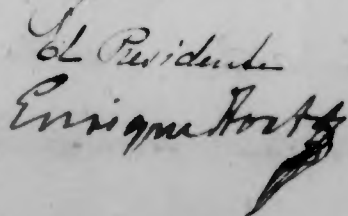 El Presidente
Enrique